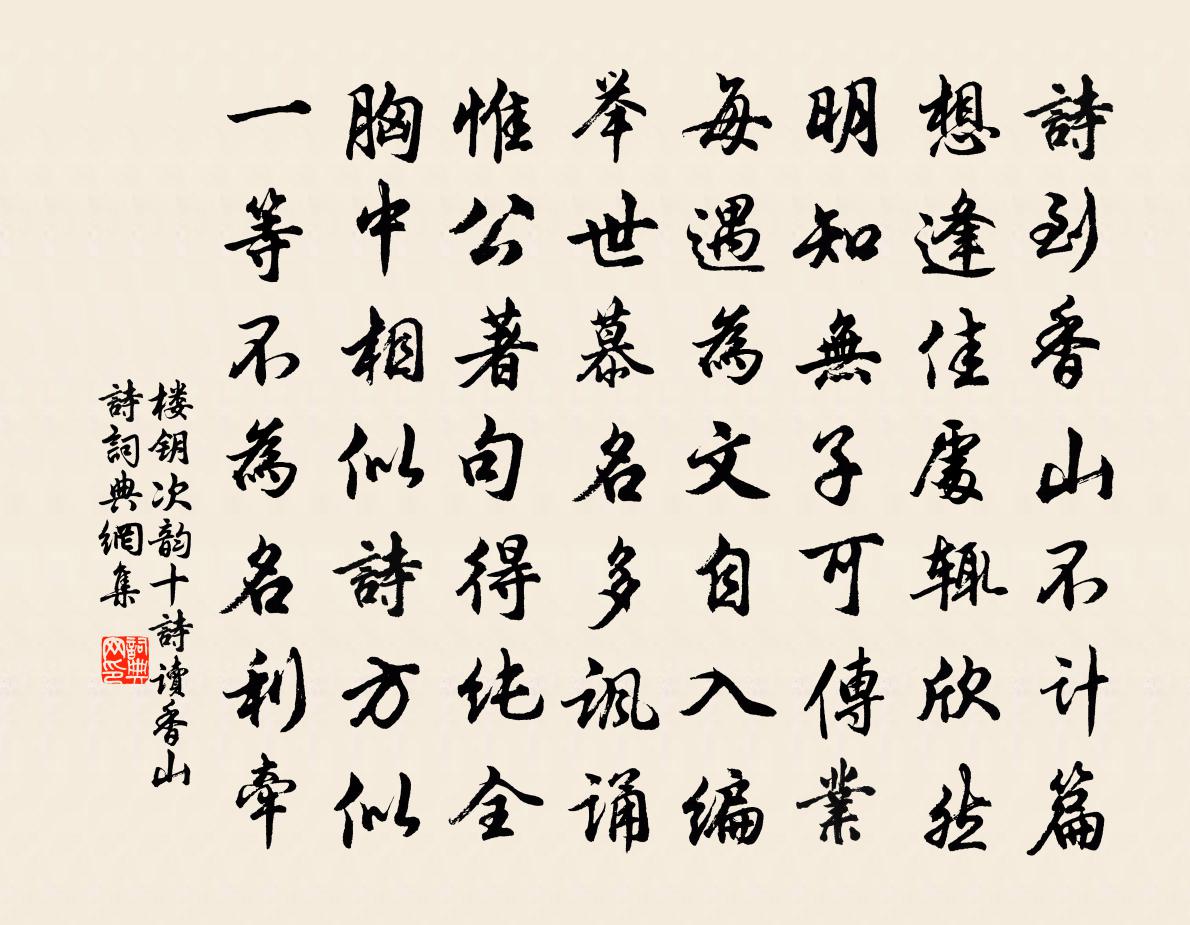 詩到香山不计篇
想逢佳處辄欣然
明知無子可傳業
每遇為文自入编
举世慕名多讽诵
惟公著句得纯全
胸中相似詩方似
一等不為名利牽
楼钥次韵十詩讀香山
詩詞典網集
詞典
网印